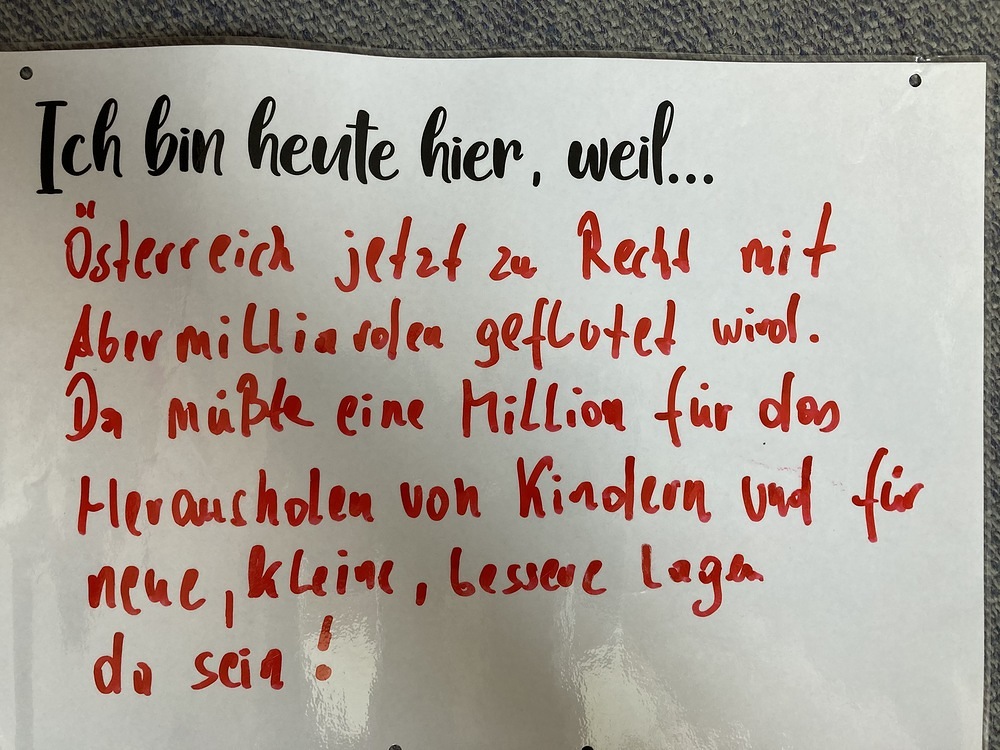 Ich bin heute hier, weil...
Österreich jetzt zu Recht mit
Abermilliarden geflutet wird.
Da müßte eine Million für das
Herausholen von Kindern und für
neue, kleine, bessere Lager
da sein!